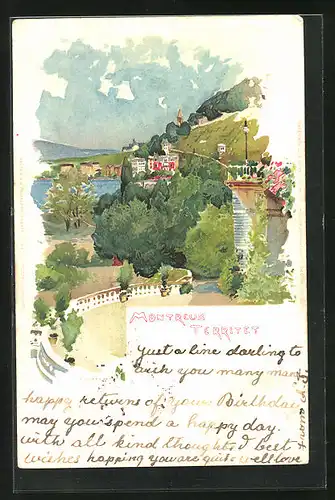 MONTREUX
TERRITET
Just a line darling to
wish you many many
happy returns of your Birthday
may you spend a happy day.
with all kind thoughts & best
wishes happing you are quite well love
from